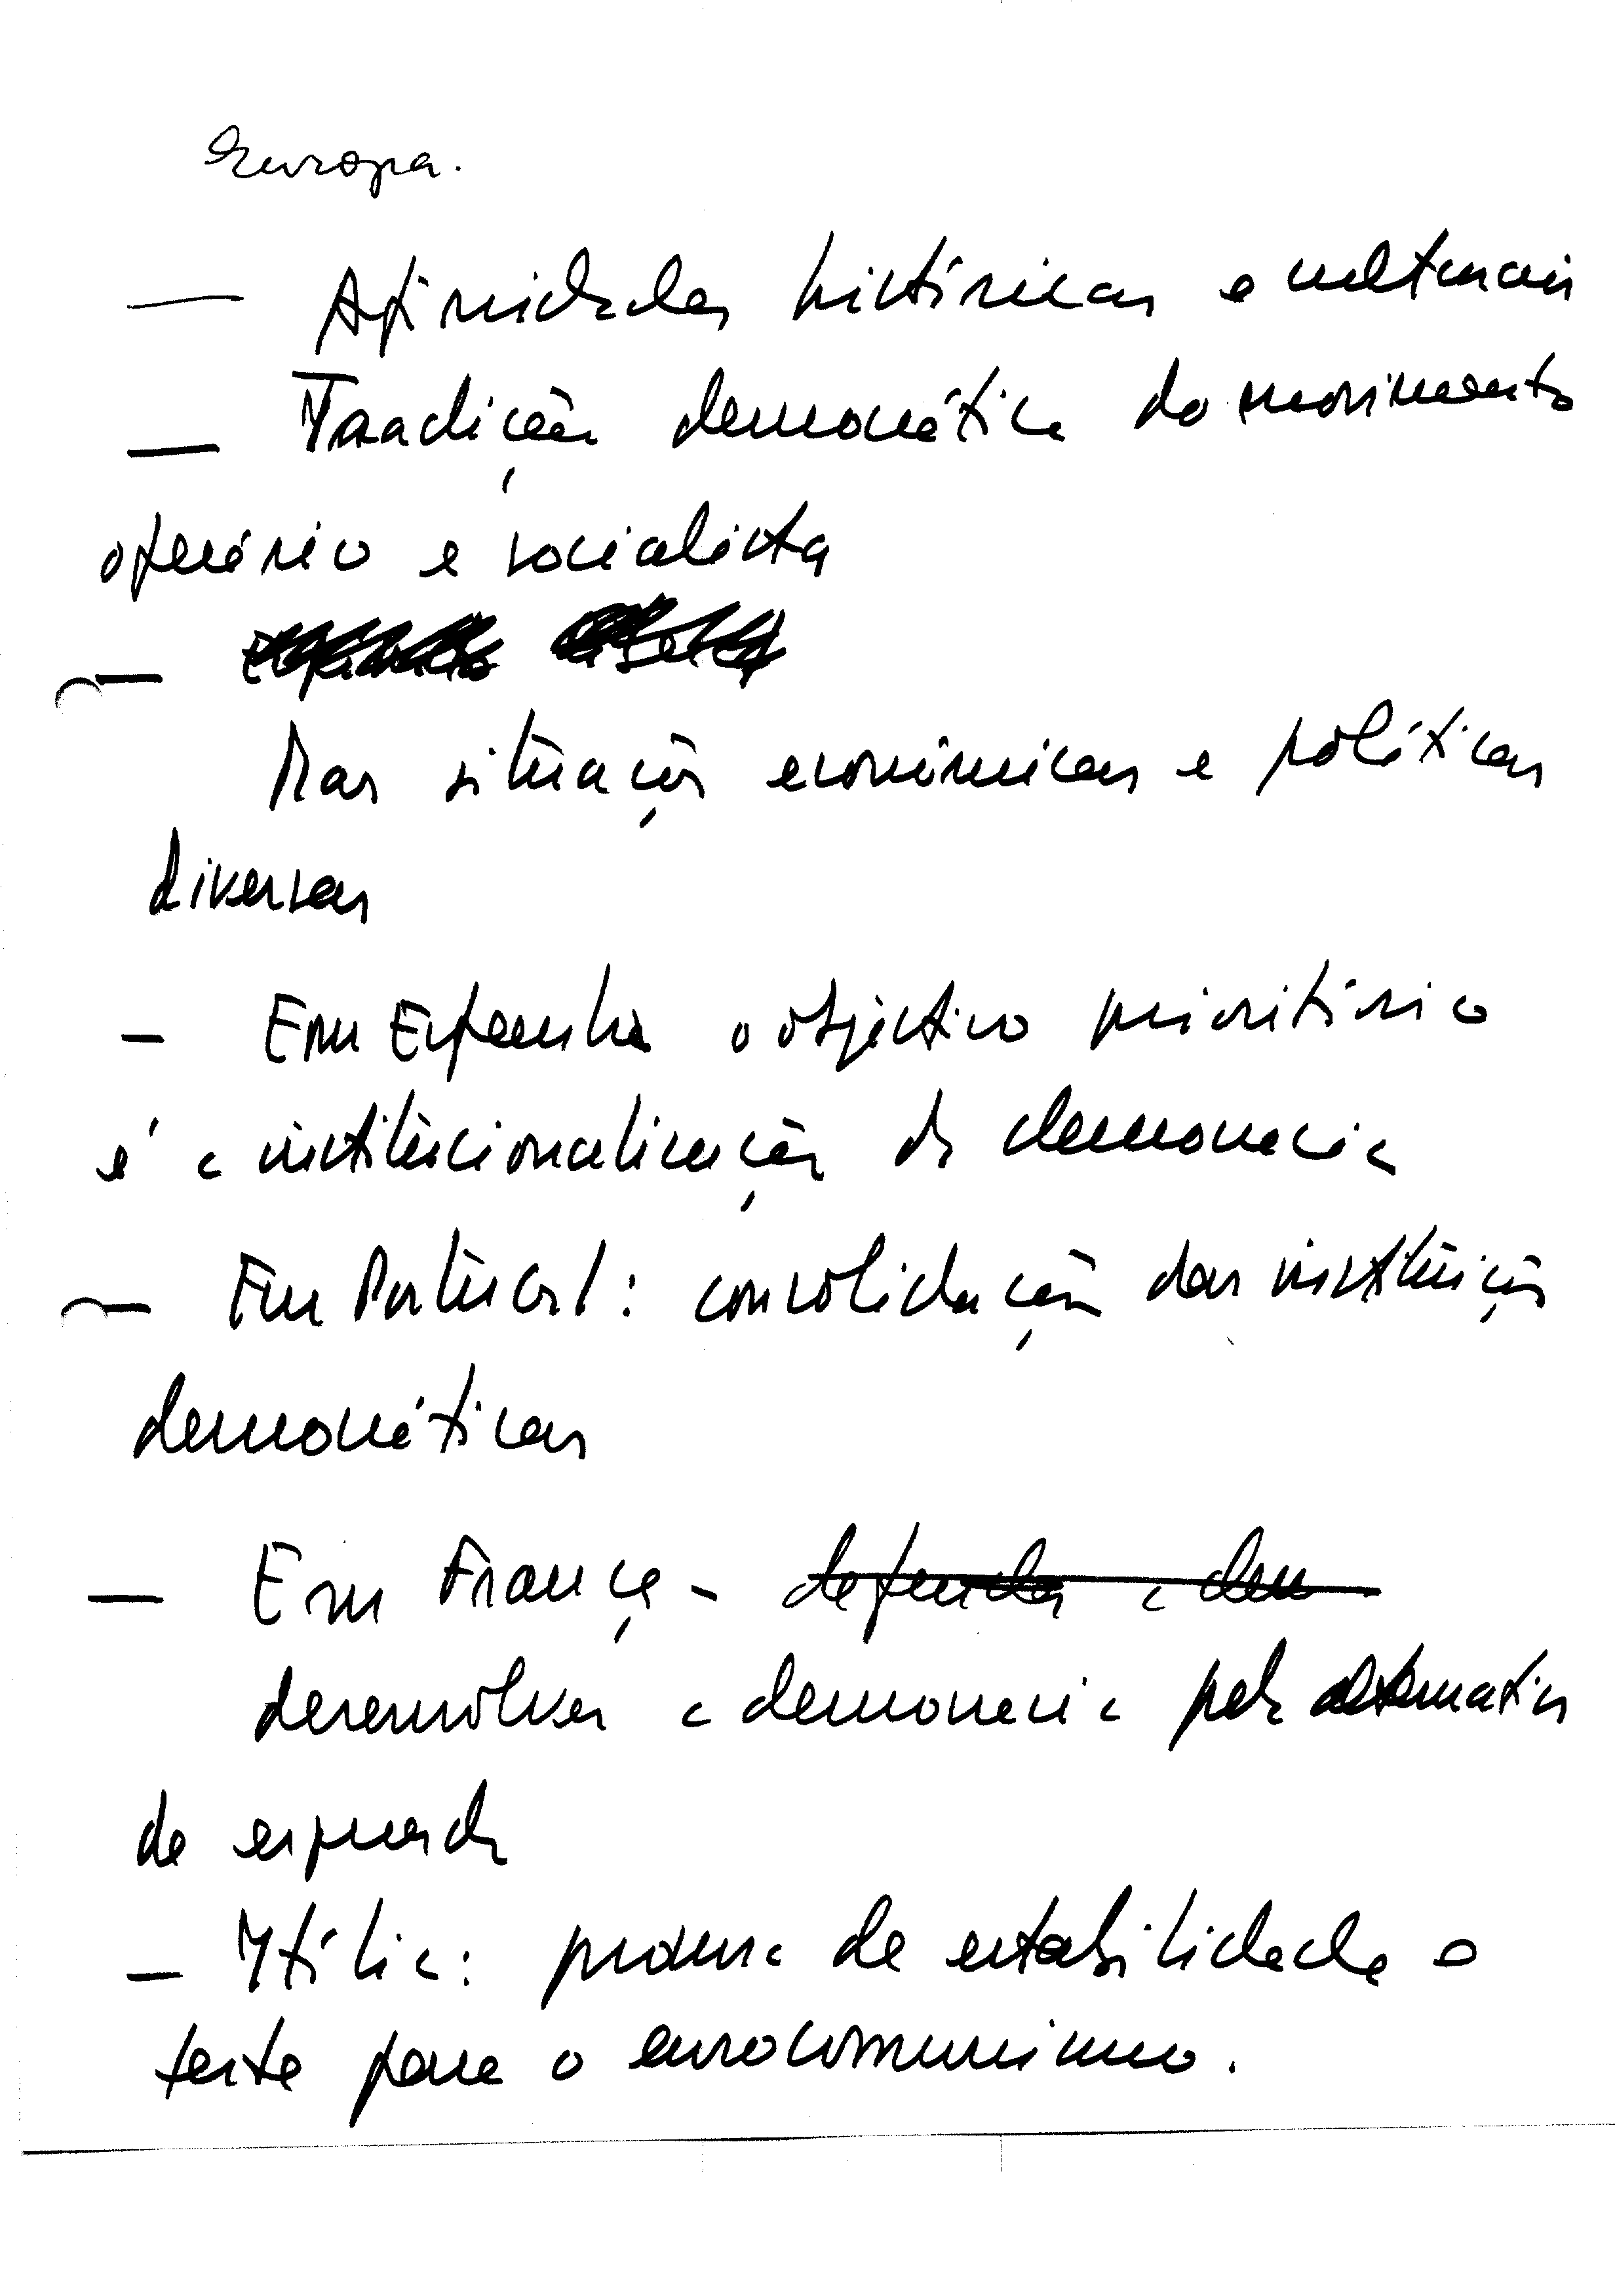 Europa.
— Afinidades históricas e culturais
— Tradição democrática do movimento
operário e socialista
—
Mas situações económicas e políticas
diversas
- Em Espanha o objectivo prioritário
é a institucionalização da democracia
- Em Portugal: consolidação das instituições
democráticas
- Em França - defender a dem
desenvolver a democracia pela alternativa
de esquerda
- Itália: procura de estabilidade e
teste para o eurocomunismo.